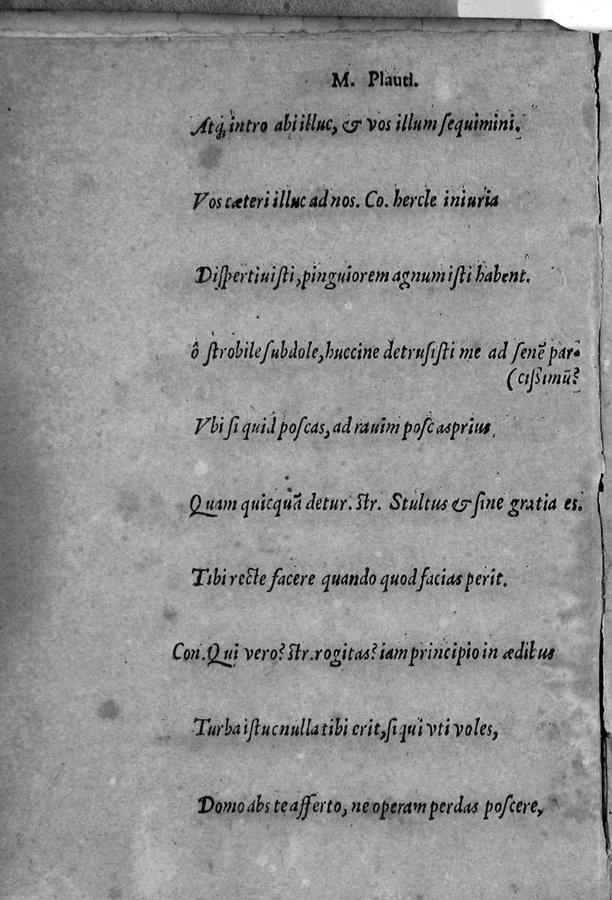 M. Plauti.
Atq; intro abi illuc, & vos illum ſequimini.
Vos cæteri illuc ad nos. Co. hercle iniuria
Diſpertiuiſti, pinguiorem agnum iſti habent.
ô ſtrobile ſubdole, huccine detruſiſti me ad ſenē par-
(ciſsimū?
Vbi ſi quid poſcas, ad rauim poſcas prius,
Quam quicquā detur. Str. Stultus & ſine gratia es.
Tibi recte facere quando quod facias perit.
Con. Qui vero? Str. rogitas? iam principio in ædibus
Turba iſtuc nulla tibi erit, ſi qui vti voles,
Domo abs te afferto, ne operam perdas poſcere,